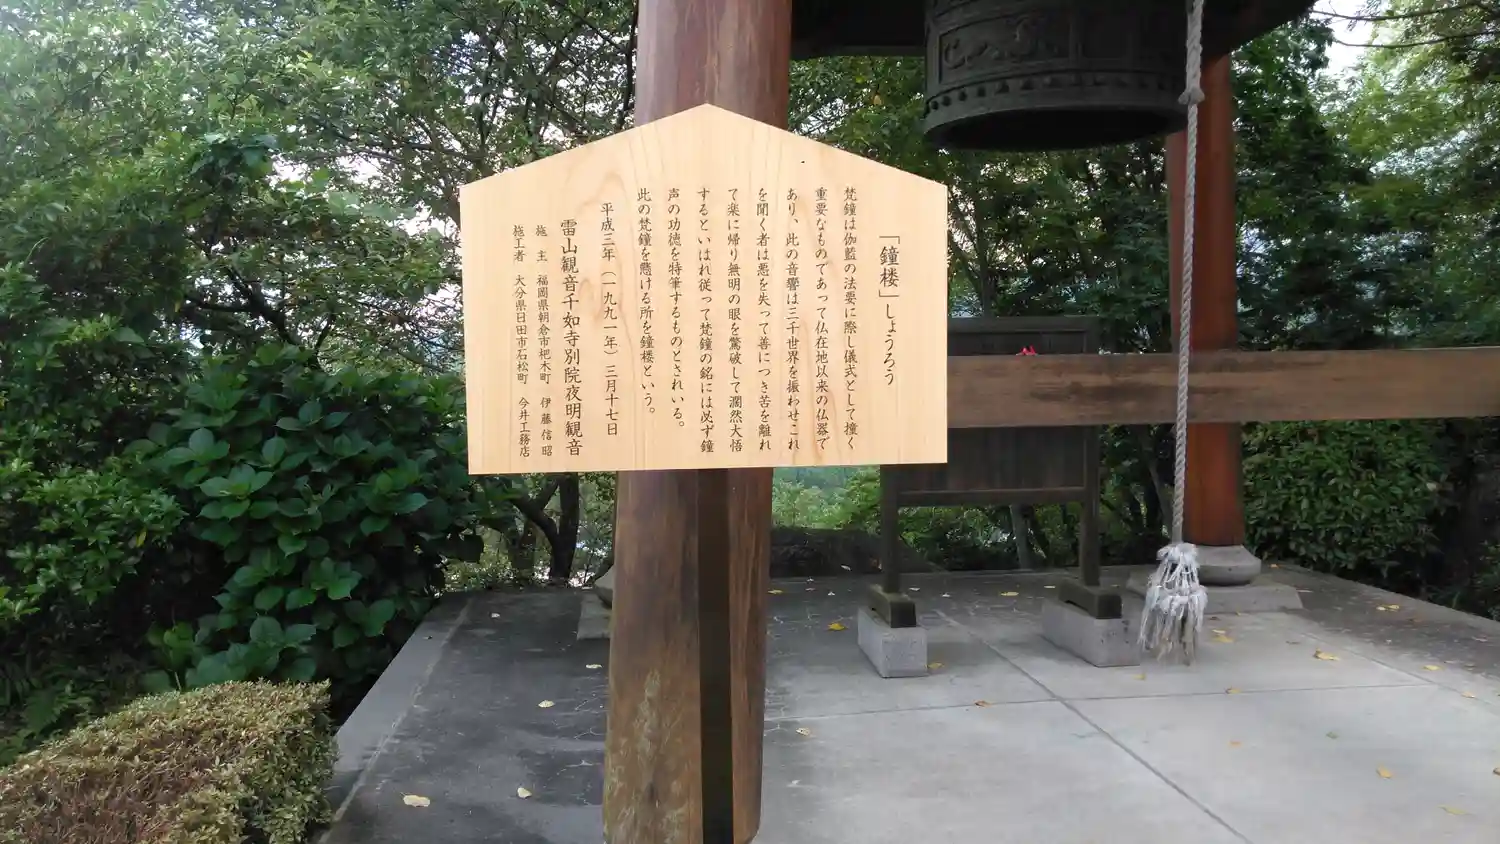 「鐘楼」しょうろう
梵鐘は伽藍の法要に際し儀式として撞く
重要なものであって仏在地以来の仏器で
あり、此の音響は三千世界を振わせこれ
を聞く者は悪を失って善につき苦を離れ
て楽に帰り無明の眼を驚破して濶然大悟
するといはれ従って梵鐘の銘には必ず鐘
声の功徳を特筆するものとされいる。
此の梵鐘を懸ける所を鐘楼という。
平成三年(一九九一年)三月十七日
雷山観音千如寺別院夜明観音
施 主 福岡県朝倉市杷木町 伊藤信昭
施工者 大分県日田市石松町 今井工務店